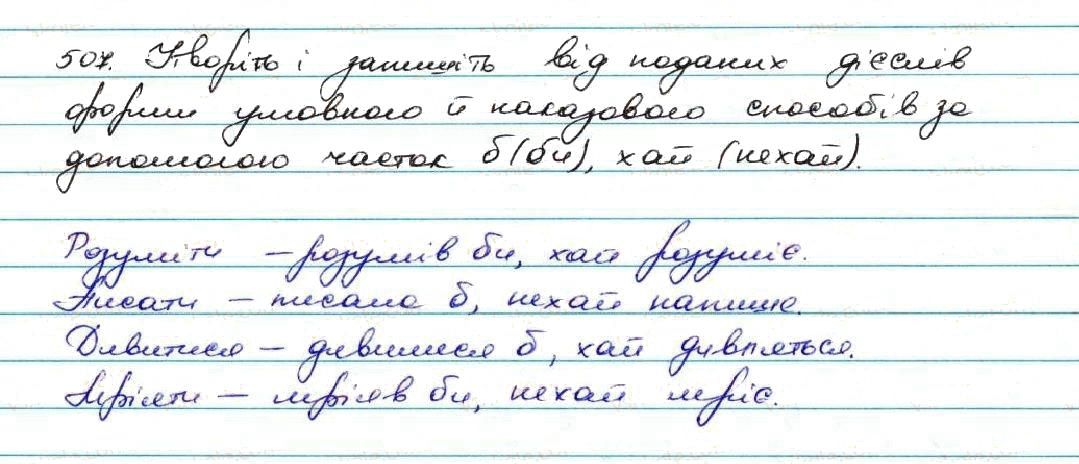 507. Утворіть і запишіть від поданих дієслів
форми умовного й наказового способів за
допомогою часток б(би), хай (нехай).
Розуміти – розумів би, хай розуміє.
Писати – писала б, нехай напише.
Дивитися – дивилися б, хай дивляться.
Мріяти – мріяв би, нехай мріє.